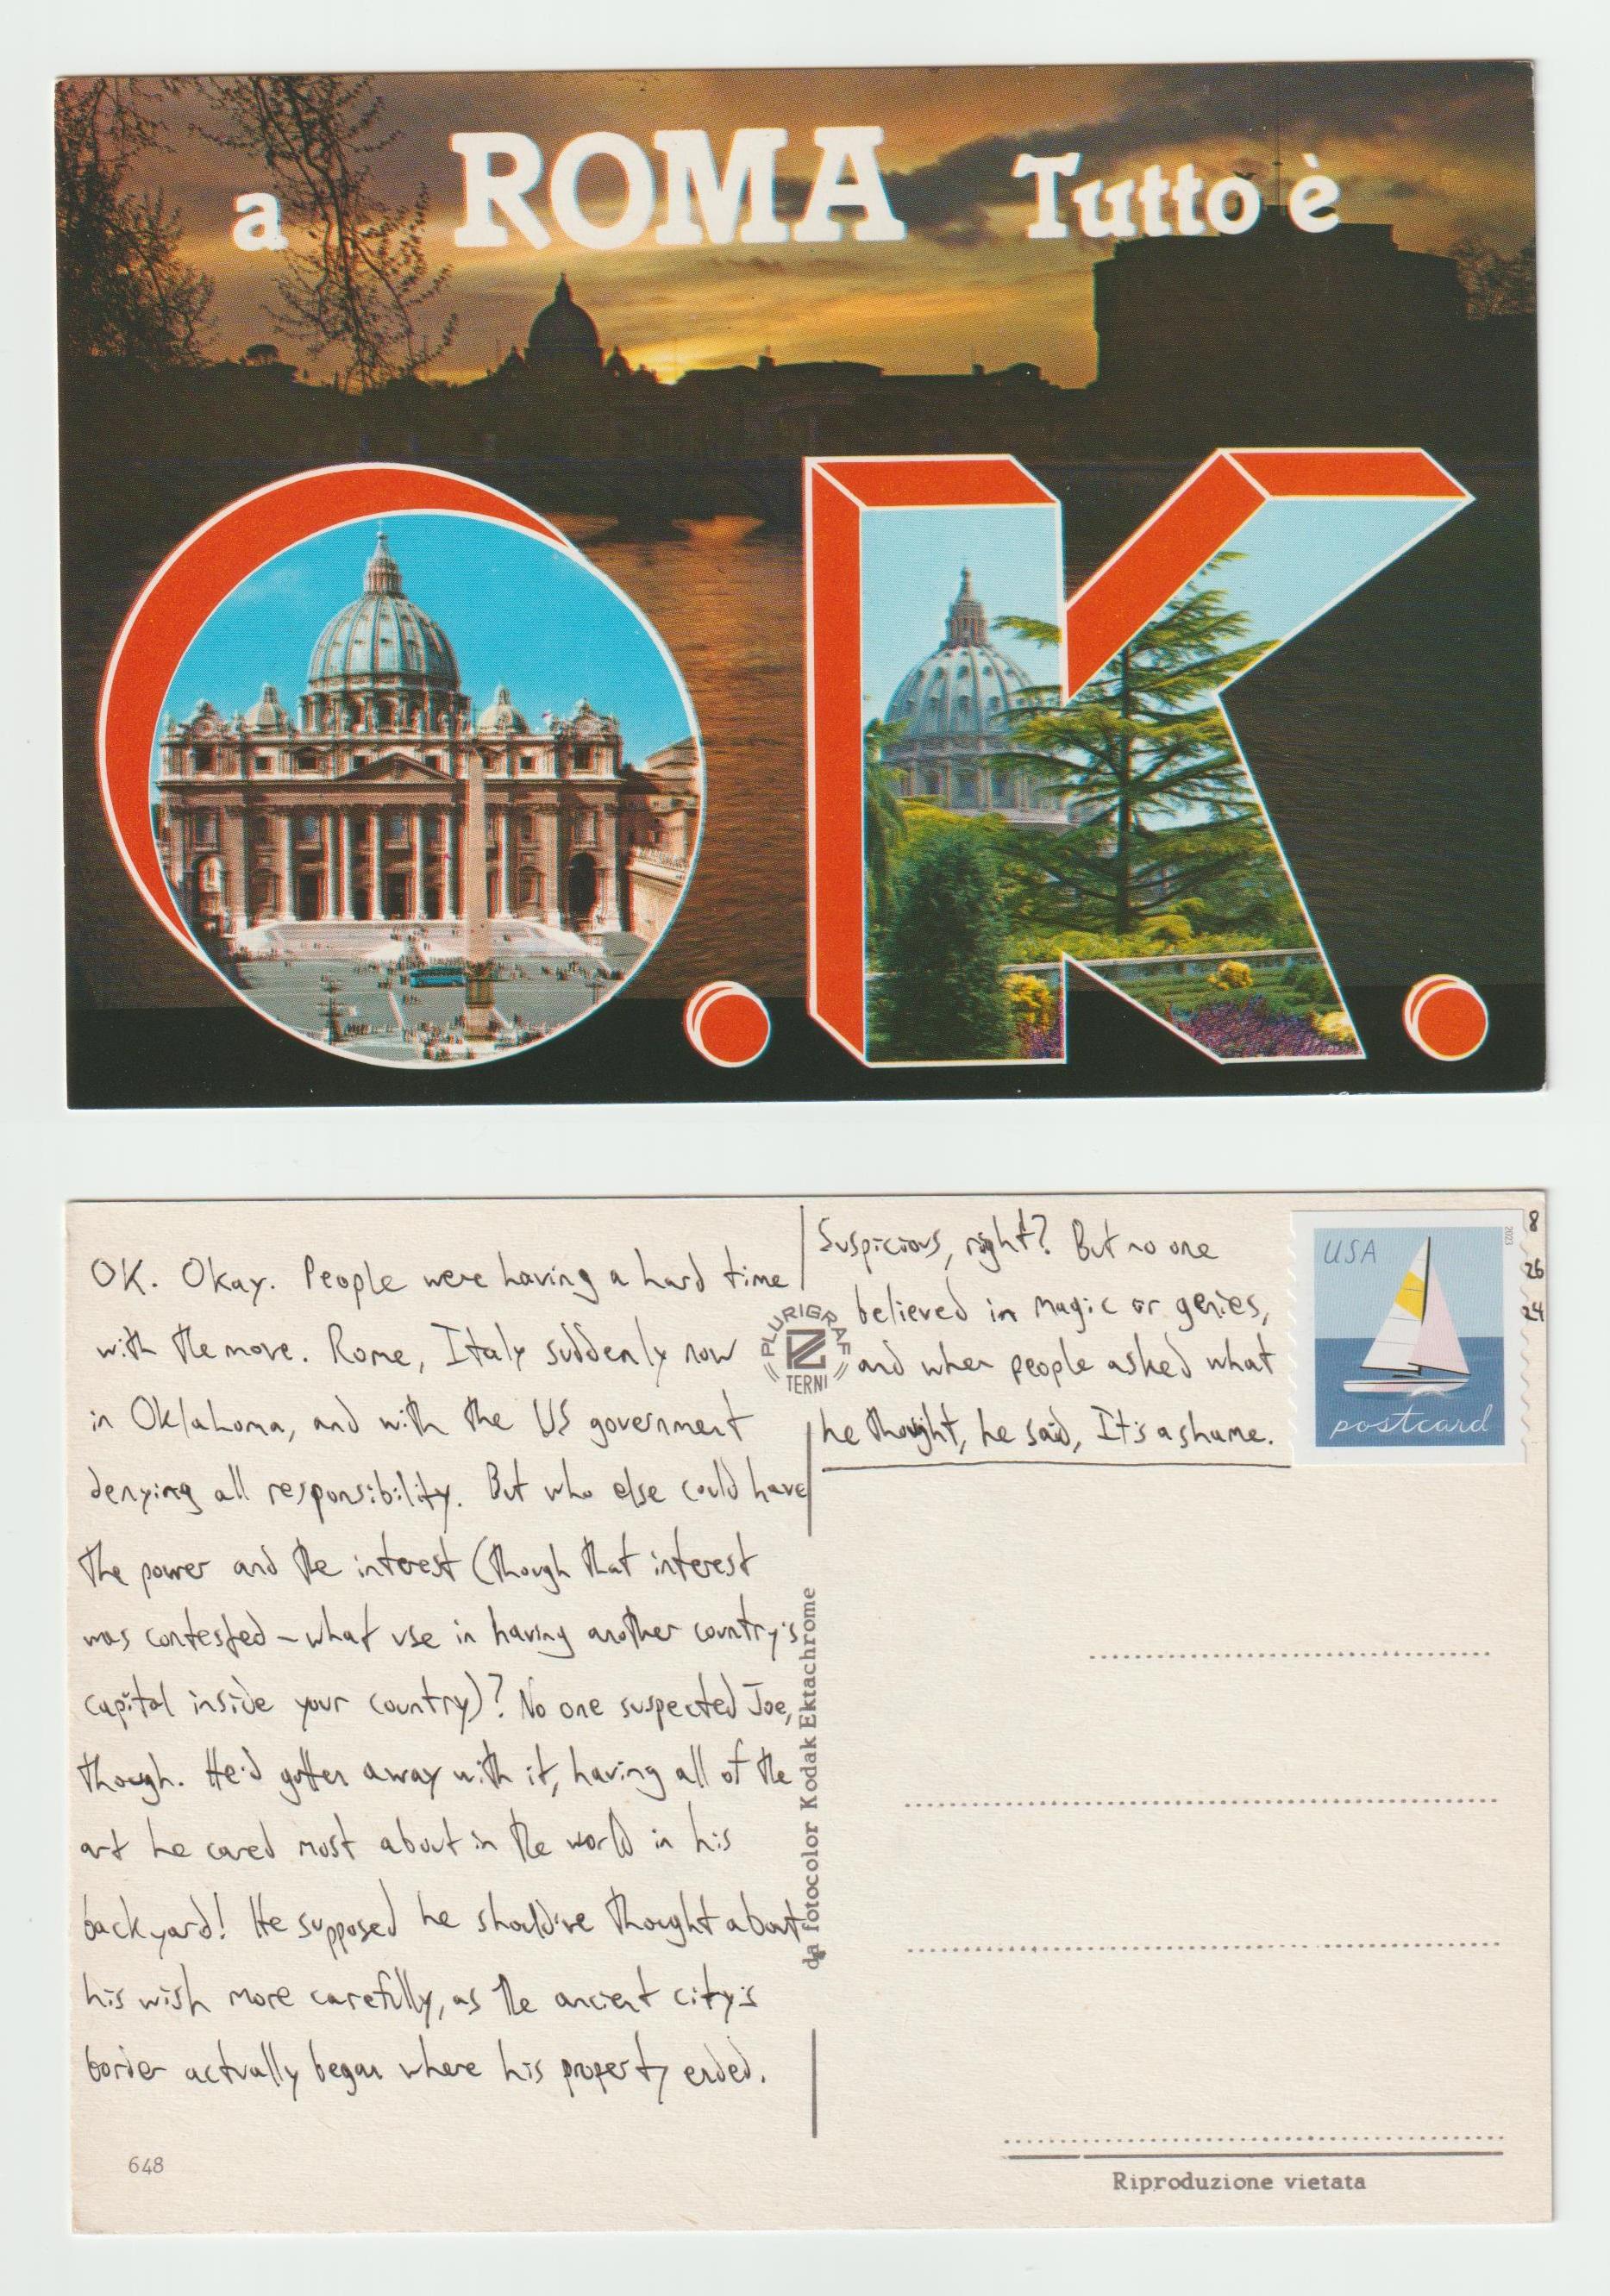 a ROMA Tutto è
O.K.
OK. Okay. People were having a hard time
with the move. Rome, Italy suddenly now
in Oklahoma, and with the US government
denying all responsibility. But who else could have
the power and the interest (though that interest
was contested – what use in having another country's
capital inside your country)? No one suspected Joe,
though. He'd gotten away with it, having all of the
art he cared most about in the world in his
backyard! He supposed he should've thought about
his wish more carefully, as the ancient city's
border actually began where his property ended.
648
Suspicious, right? But no one
believed in magic or genies,
and when people asked what
he thought, he said, It's a shame.
PLURIGRAF
TERNI
da fotocolor Kodak Ektachrome
USA
2023
postcard
8
26
24
Riproduzione vietata